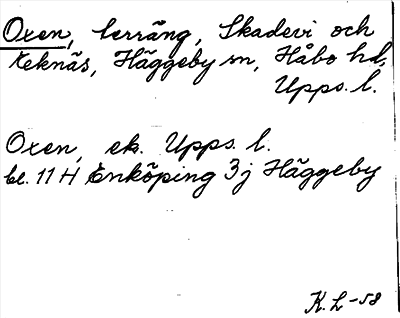 Oxen, lerräng, Skadevi och
Ekenäs, Häggeby sn, Håbo hd,
Upps. l.
Oxen, ek. Upps. l.
bl. 11 H Enköping 3j Häggeby
K. L -58